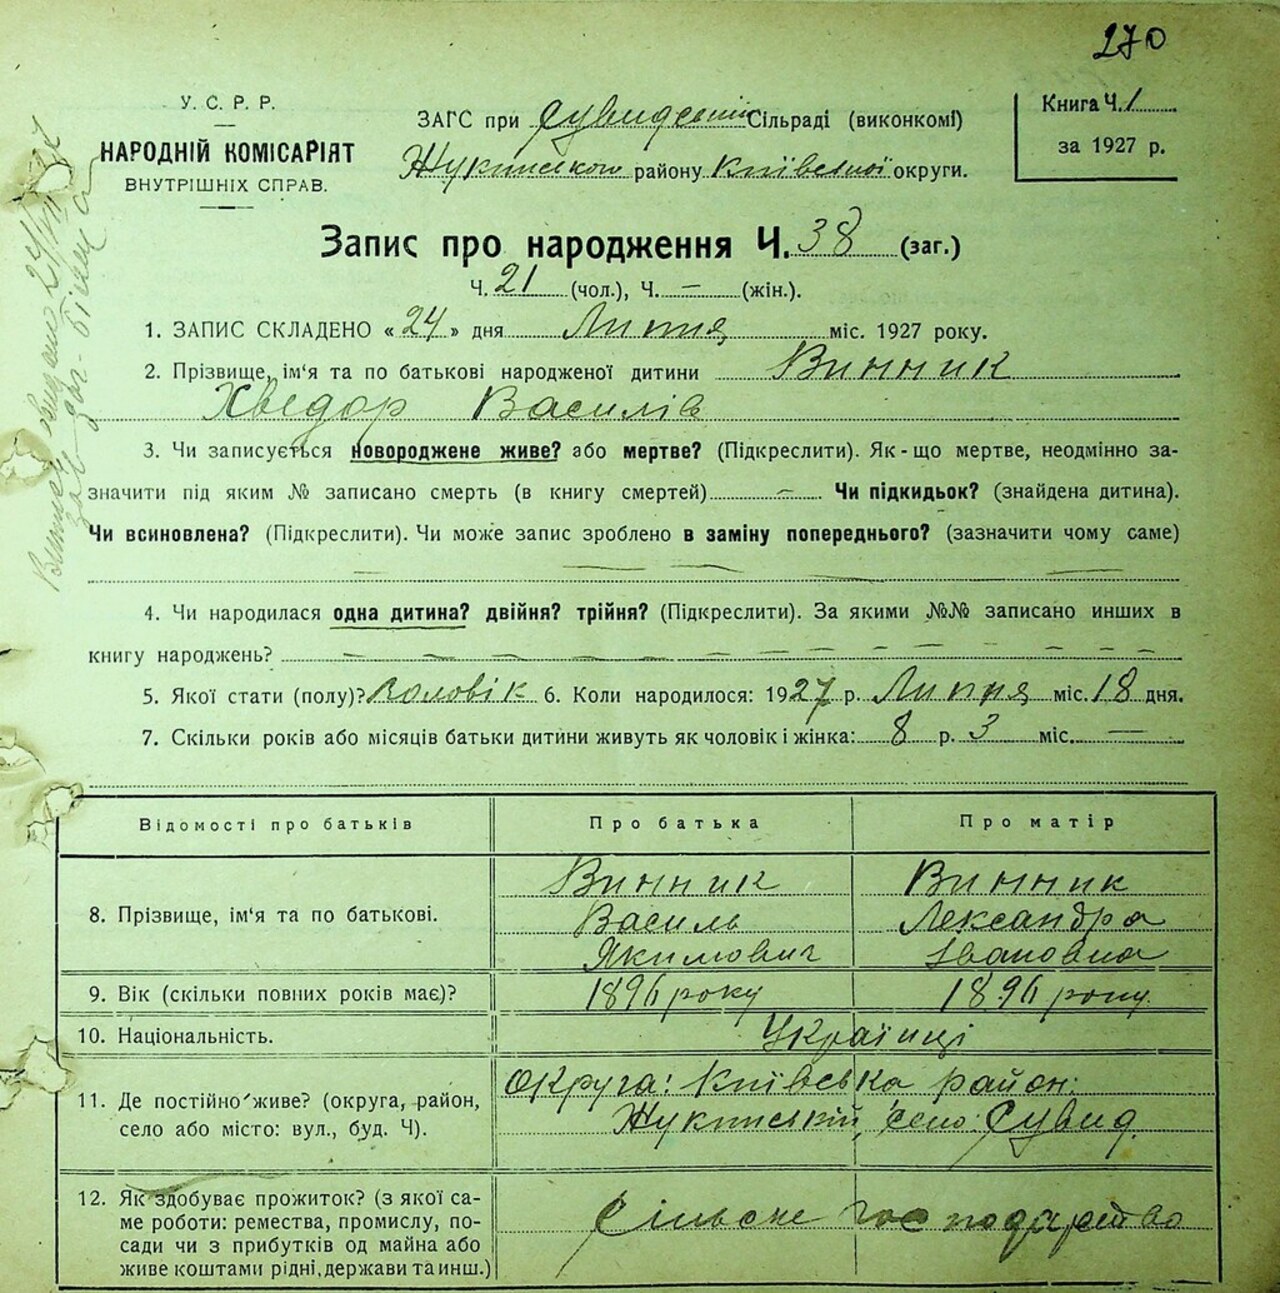 270
У. С. Р. Р.
НАРОДНІЙ КОМІСАРІЯТ
ВНУТРІШНІХ СПРАВ.
ЗАГС при Сувидській Сільраді (виконкомі)
Жукинського району Київської округи.
Книга Ч. 1
за 1927 р.
Запис про народження Ч. 38 (заг.)
Ч. 21 (чол.), Ч. — (жін.).
1. ЗАПИС СКЛАДЕНО « 24 » дня Липня міс. 1927 року.
2. Прізвище, ім'я та по батькові народженої дитини Винник
Хведор Василів
3. Чи записується новороджене живе? або мертве? (Підкреслити). Як-що мертве, неодмінно за-
значити під яким № записано смерть (в книгу смертей) — Чи підкидьок? (знайдена дитина).
Чи всиновлена? (Підкреслити). Чи може запис зроблено в заміну попереднього? (зазначити чому саме)
4. Чи народилася одна дитина? двійня? трійня? (Підкреслити). За якими №№ записано инших в
книгу народжень?
5. Якої стати (полу)? Чоловік 6. Коли народилося: 1927 р. Липня міс. 18 дня.
7. Скільки років або місяців батьки дитини живуть як чоловік і жінка: 8 р. 3 міс. —
Відомості про батьків Про батька Про матір
8. Прізвище, ім'я та по батькові.
Винник
Василь
Якимович
Винник
Лександра
Івановна
9. Вік (скільки повних років має)? 1896 року 1896 року
10. Національність. Українці
11. Де постійно живе? (округа, район,
село або місто: вул., буд. Ч).
Округа: Київська район:
Жукинській, село: Сувид
12. Як здобуває прожиток? (з якої са-
ме роботи: ремества, промислу, по-
сади чи з прибутків од майна або
живе коштами рідні, держави та инш.)
Сільське господарство